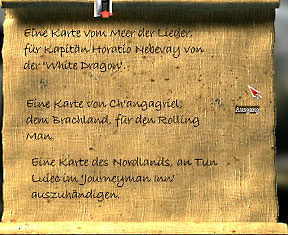 Eine Karte vom Meer der Lieder,
für Kapitän Horatio Nebevay von
der 'White Dragon'.
Eine Karte von Ch'angagriel,
dem Brachland, für den Rolling
Man.
Ausgang
Eine Karte des Nordlands, an Tun
Luiec im 'Journeyman Inn'
auszuhändigen.